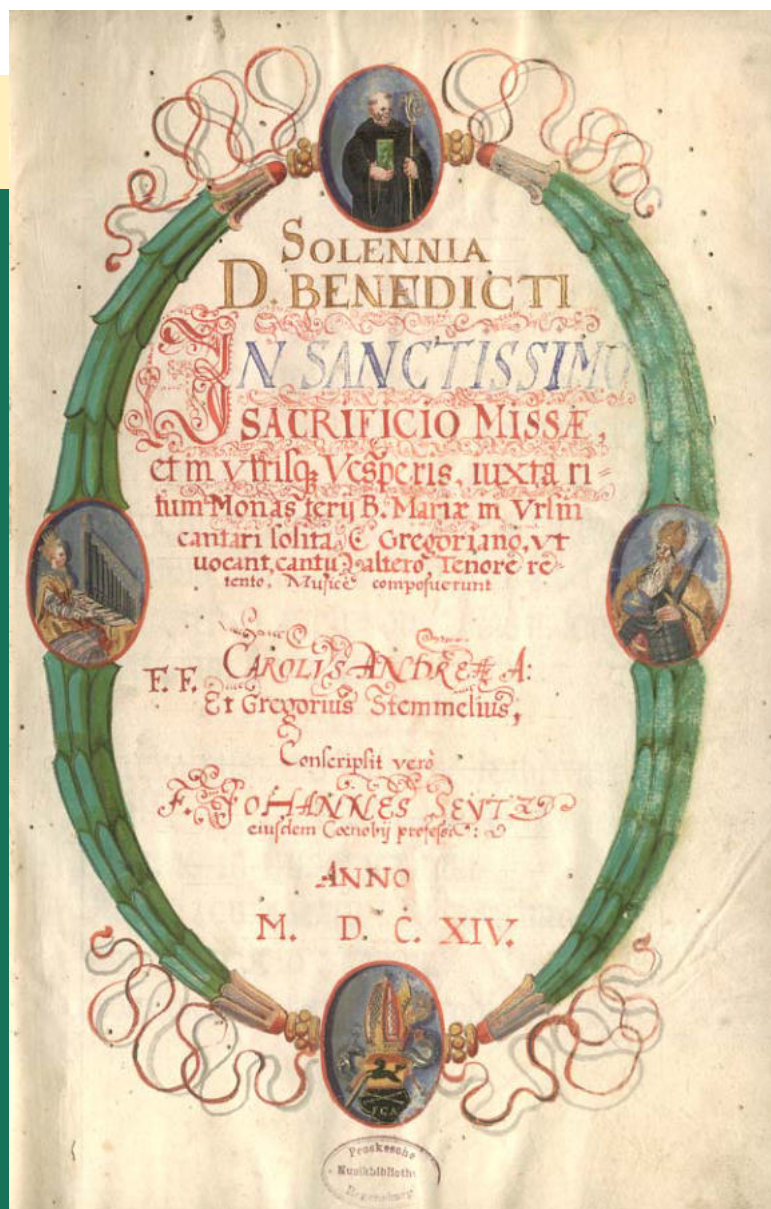 SOLENNIA
D. BENEDICTI
IN SANCTISSIMO
SACRIFICIO MISSÆ,
et in vtrisq; Vesperis, iuxta ri-
tum Monasterij B. Mariæ in Vrsin
cantari solita, E Gregoriano, vt
uocant, cantu altero, Tenore re-
tento, Musice composuerunt
F. F. CAROLVS ANDREÆ A:
Et Gregorius Stemmelius,
Conscripsit verò
F. IOHANNES SEVTZ
eiusdem Cœnobij
ANNO
M. D. C. XIV.
FCA
Proskesche
Musikbiblioth
Regensburg